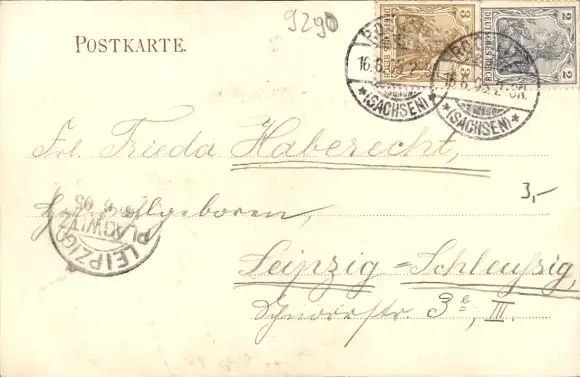 9290
POSTKARTE.
3 DEUTSCHES REICH 3
2 DEUTSCHES REICH 2
16.6.05
(SACHSEN)
16.6.05
(SACHSEN)
Frl. Frieda Haberecht,
3,-
Hochwohlgeboren,
LEIPZIG
PLAGWITZ
Leipzig=Schleußig,
3ᴱ, III.